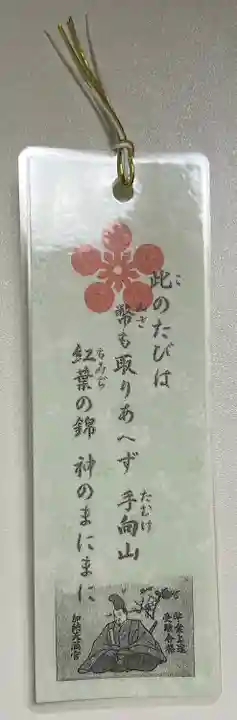 此のたびは
幣も取りあへず 手向山
紅葉の錦 神のまにまに
こ
ぬさ
たむけ
もみぢ
学業上達
受験合格
加納天満宮